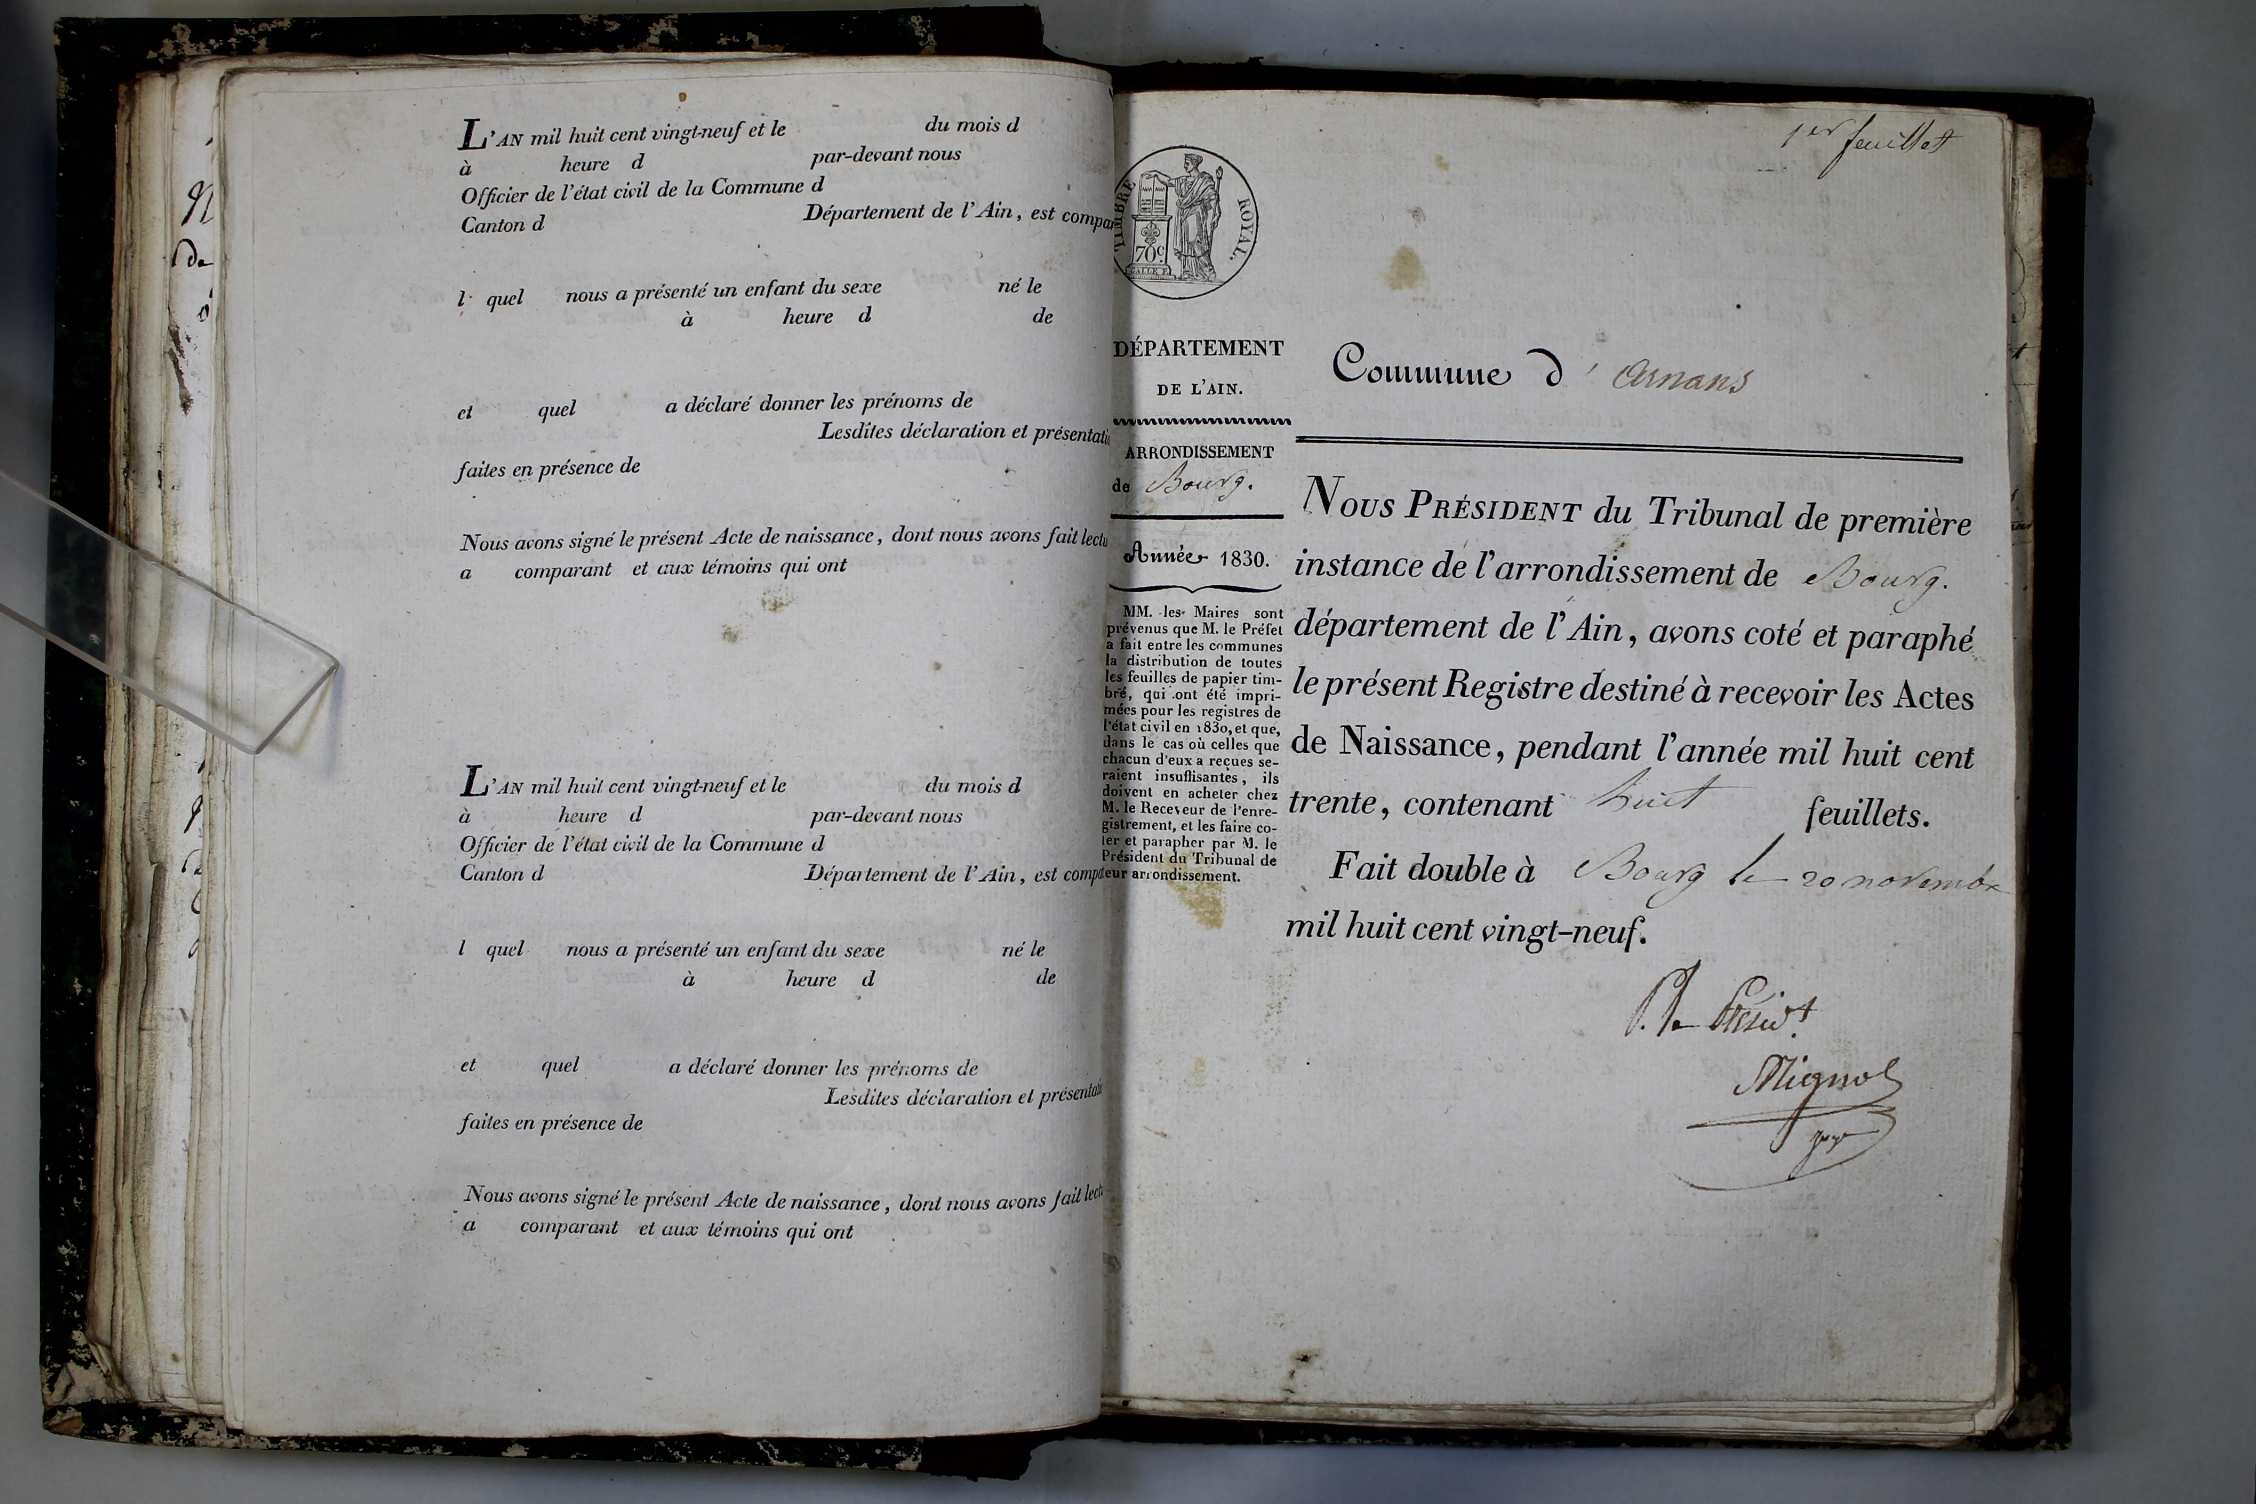 L'AN mil huit cent vingt-neuf et le du mois d
à heure d par-devant nous
Officier de l'état civil de la Commune d
Canton d Département de l'Ain, est compar
l quel nous a présenté un enfant du sexe né le
à heure d de
et quel a déclaré donner les prénoms de
Lesdites déclaration et présentati
faites en présence de
Nous avons signé le présent Acte de naissance, dont nous avons fait lectu
a comparant et aux témoins qui ont
L'AN mil huit cent vingt-neuf et le du mois d
à heure d par-devant nous
Officier de l'état civil de la Commune d
Canton d Département de l'Ain, est compa
l quel nous a présenté un enfant du sexe né le
à heure d de
et quel a déclaré donner les prénoms de
Lesdites déclaration et présentati
faites en présence de
Nous avons signé le présent Acte de naissance, dont nous avons fait lect
a comparant et aux témoins qui ont
1er feuillet
TIMBRE ROYAL.
70c
DÉPARTEMENT
DE L'AIN.
ARRONDISSEMENT
de Bourg.
Année 1830.
MM. les Maires sont
prévenus que M. le Préfet
a fait entre les communes
la distribution de toutes
les feuilles de papier tim-
bré, qui ont été impri-
mées pour les registres de
l'état civil en 1830, et que,
dans le cas où celles que
chacun d'eux a reçues se-
raient insuffisantes, ils
doivent en acheter chez
M. le Receveur de l'enre-
gistrement, et les faire co-
ter et parapher par M. le
Président du Tribunal de
leur arrondissement.
Commune d' Arnans
NOUS PRÉSIDENT du Tribunal de première
instance de l'arrondissement de Bourg.
département de l'Ain, avons coté et paraphé
le présent Registre destiné à recevoir les Actes
de Naissance, pendant l'année mil huit cent
trente, contenant huit feuillets.
Fait double à Bourg le 20 novembre
mil huit cent vingt-neuf.
P. le Présidt
Mignot
juge